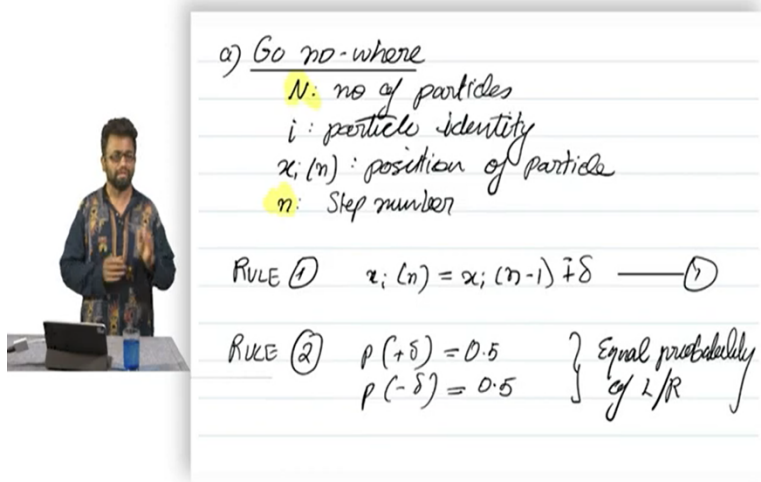 a) Go no-where
N: no of particles
i: particle identity
xᵢ(n): position of particle
n: Step number
RULE ① xᵢ(n) = xᵢ(n-1) ∓ δ —— ①
RULE ② p(+δ) = 0.5 } Equal probability
p(-δ) = 0.5 of L/R